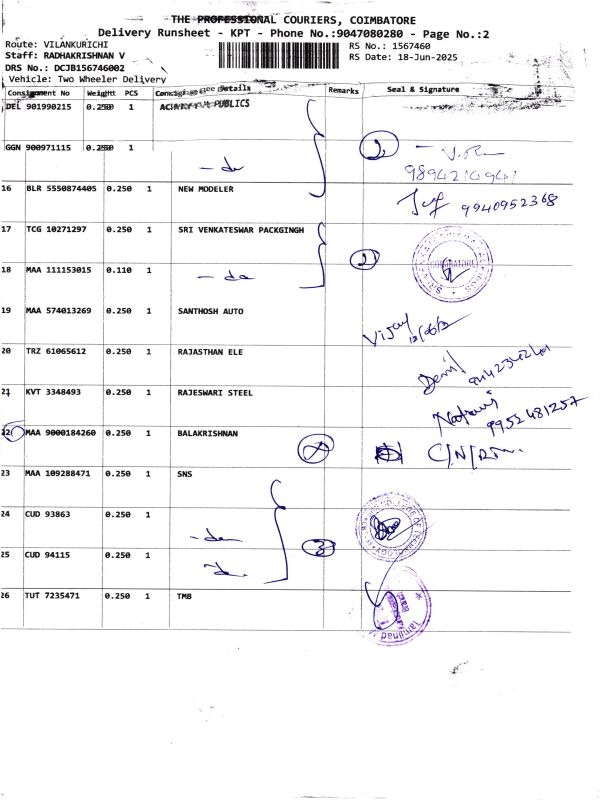 THE PROFESSIONAL COURIERS, COIMBATORE
Delivery Runsheet - KPT - Phone No.:9047080280 - Page No.:2
Route: VILANKURICHI RS No.: 1567460
Staff: RADHAKRISHNAN V RS Date: 18-Jun-2025
DRS No.: DCJB156746002
Vehicle: Two Wheeler Delivery
Consignment No Weight PCS Consignee Details Remarks Seal & Signature
DEL 901990215 0.250 1 PUBLICS
GGN 900971115 0.250 1 2
- do
16 BLR 5550874405 0.250 1 NEW MODELER
9940952368
17 TCG 10271297 0.250 1 SRI VENKATESWAR PACKGINGH
2 COIMBATORE
18 MAA 111153015 0.110 1 - do
19 MAA 574013269 0.250 1 SANTHOSH AUTO
Vijay
20 TRZ 61065612 0.250 1 RAJASTHAN ELE
21 KVT 3348493 0.250 1 RAJESWARI STEEL
9952481257
22 MAA 9000184260 0.250 1 BALAKRISHNAN
23 MAA 109288471 0.250 1 SNS
24 CUD 93863 0.250 1
- do 3
25 CUD 94115 0.250 1
26 TUT 7235471 0.250 1 TMB
Tamilnad